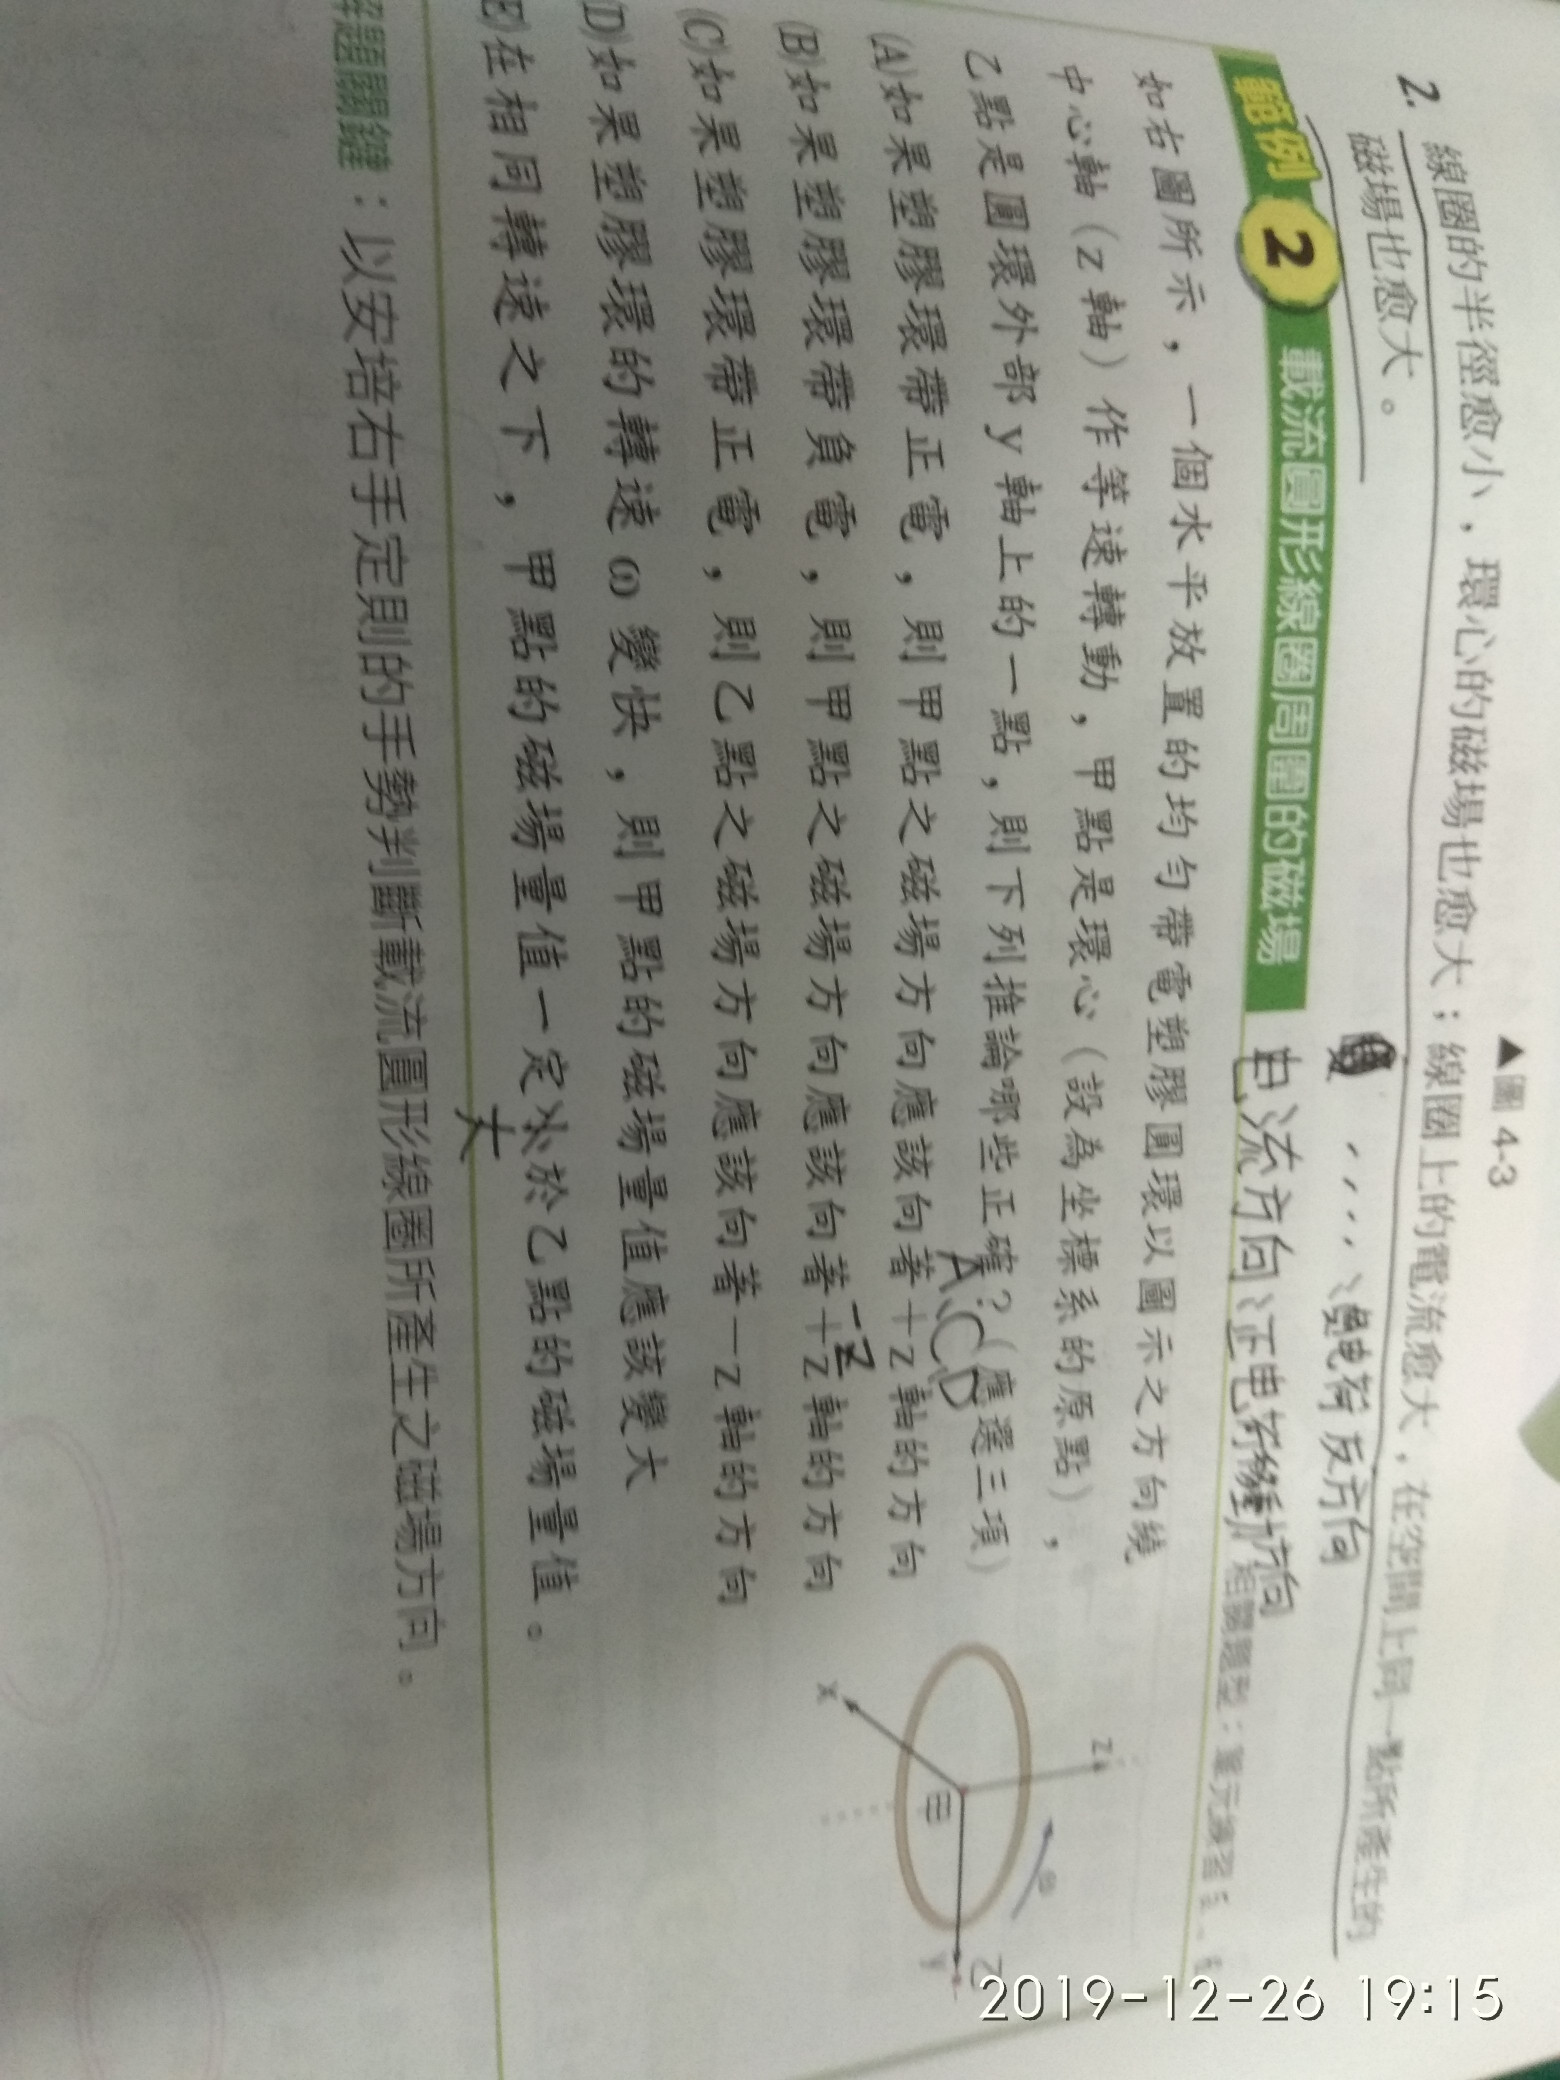 ▲圖 4-3
2. 線圈的半徑愈小，環心的磁場也愈大；線圈上的電流愈大，在空間上同一點所產生的
磁場也愈大。
負電荷反方向
範例 2 載流圓形線圈周圍的磁場
電流方向：正電荷移動方向
相關題型：單元練習
如右圖所示，一個水平放置的均勻帶電塑膠圓環以圖示之方向繞
中心軸（z 軸）作等速轉動，甲點是環心（設為坐標系的原點），
乙點是圓環外部 y 軸上的一點，則下列推論哪些正確？（應選三項）
A、C、D
(A)如果塑膠環帶正電，則甲點之磁場方向應該向著＋z 軸的方向
(B)如果塑膠環帶負電，則甲點之磁場方向應該向著＋z 軸的方向
-z
(C)如果塑膠環帶正電，則乙點之磁場方向應該向著－z 軸的方向
(D)如果塑膠環的轉速 ω 變快，則甲點的磁場量值應該變大
(E)在相同轉速之下，甲點的磁場量值一定小於乙點的磁場量值。
大
z
ω
甲
x
y
乙
解題關鍵：以安培右手定則的手勢判斷載流圓形線圈所產生之磁場方向。
2019-12-26 19:15